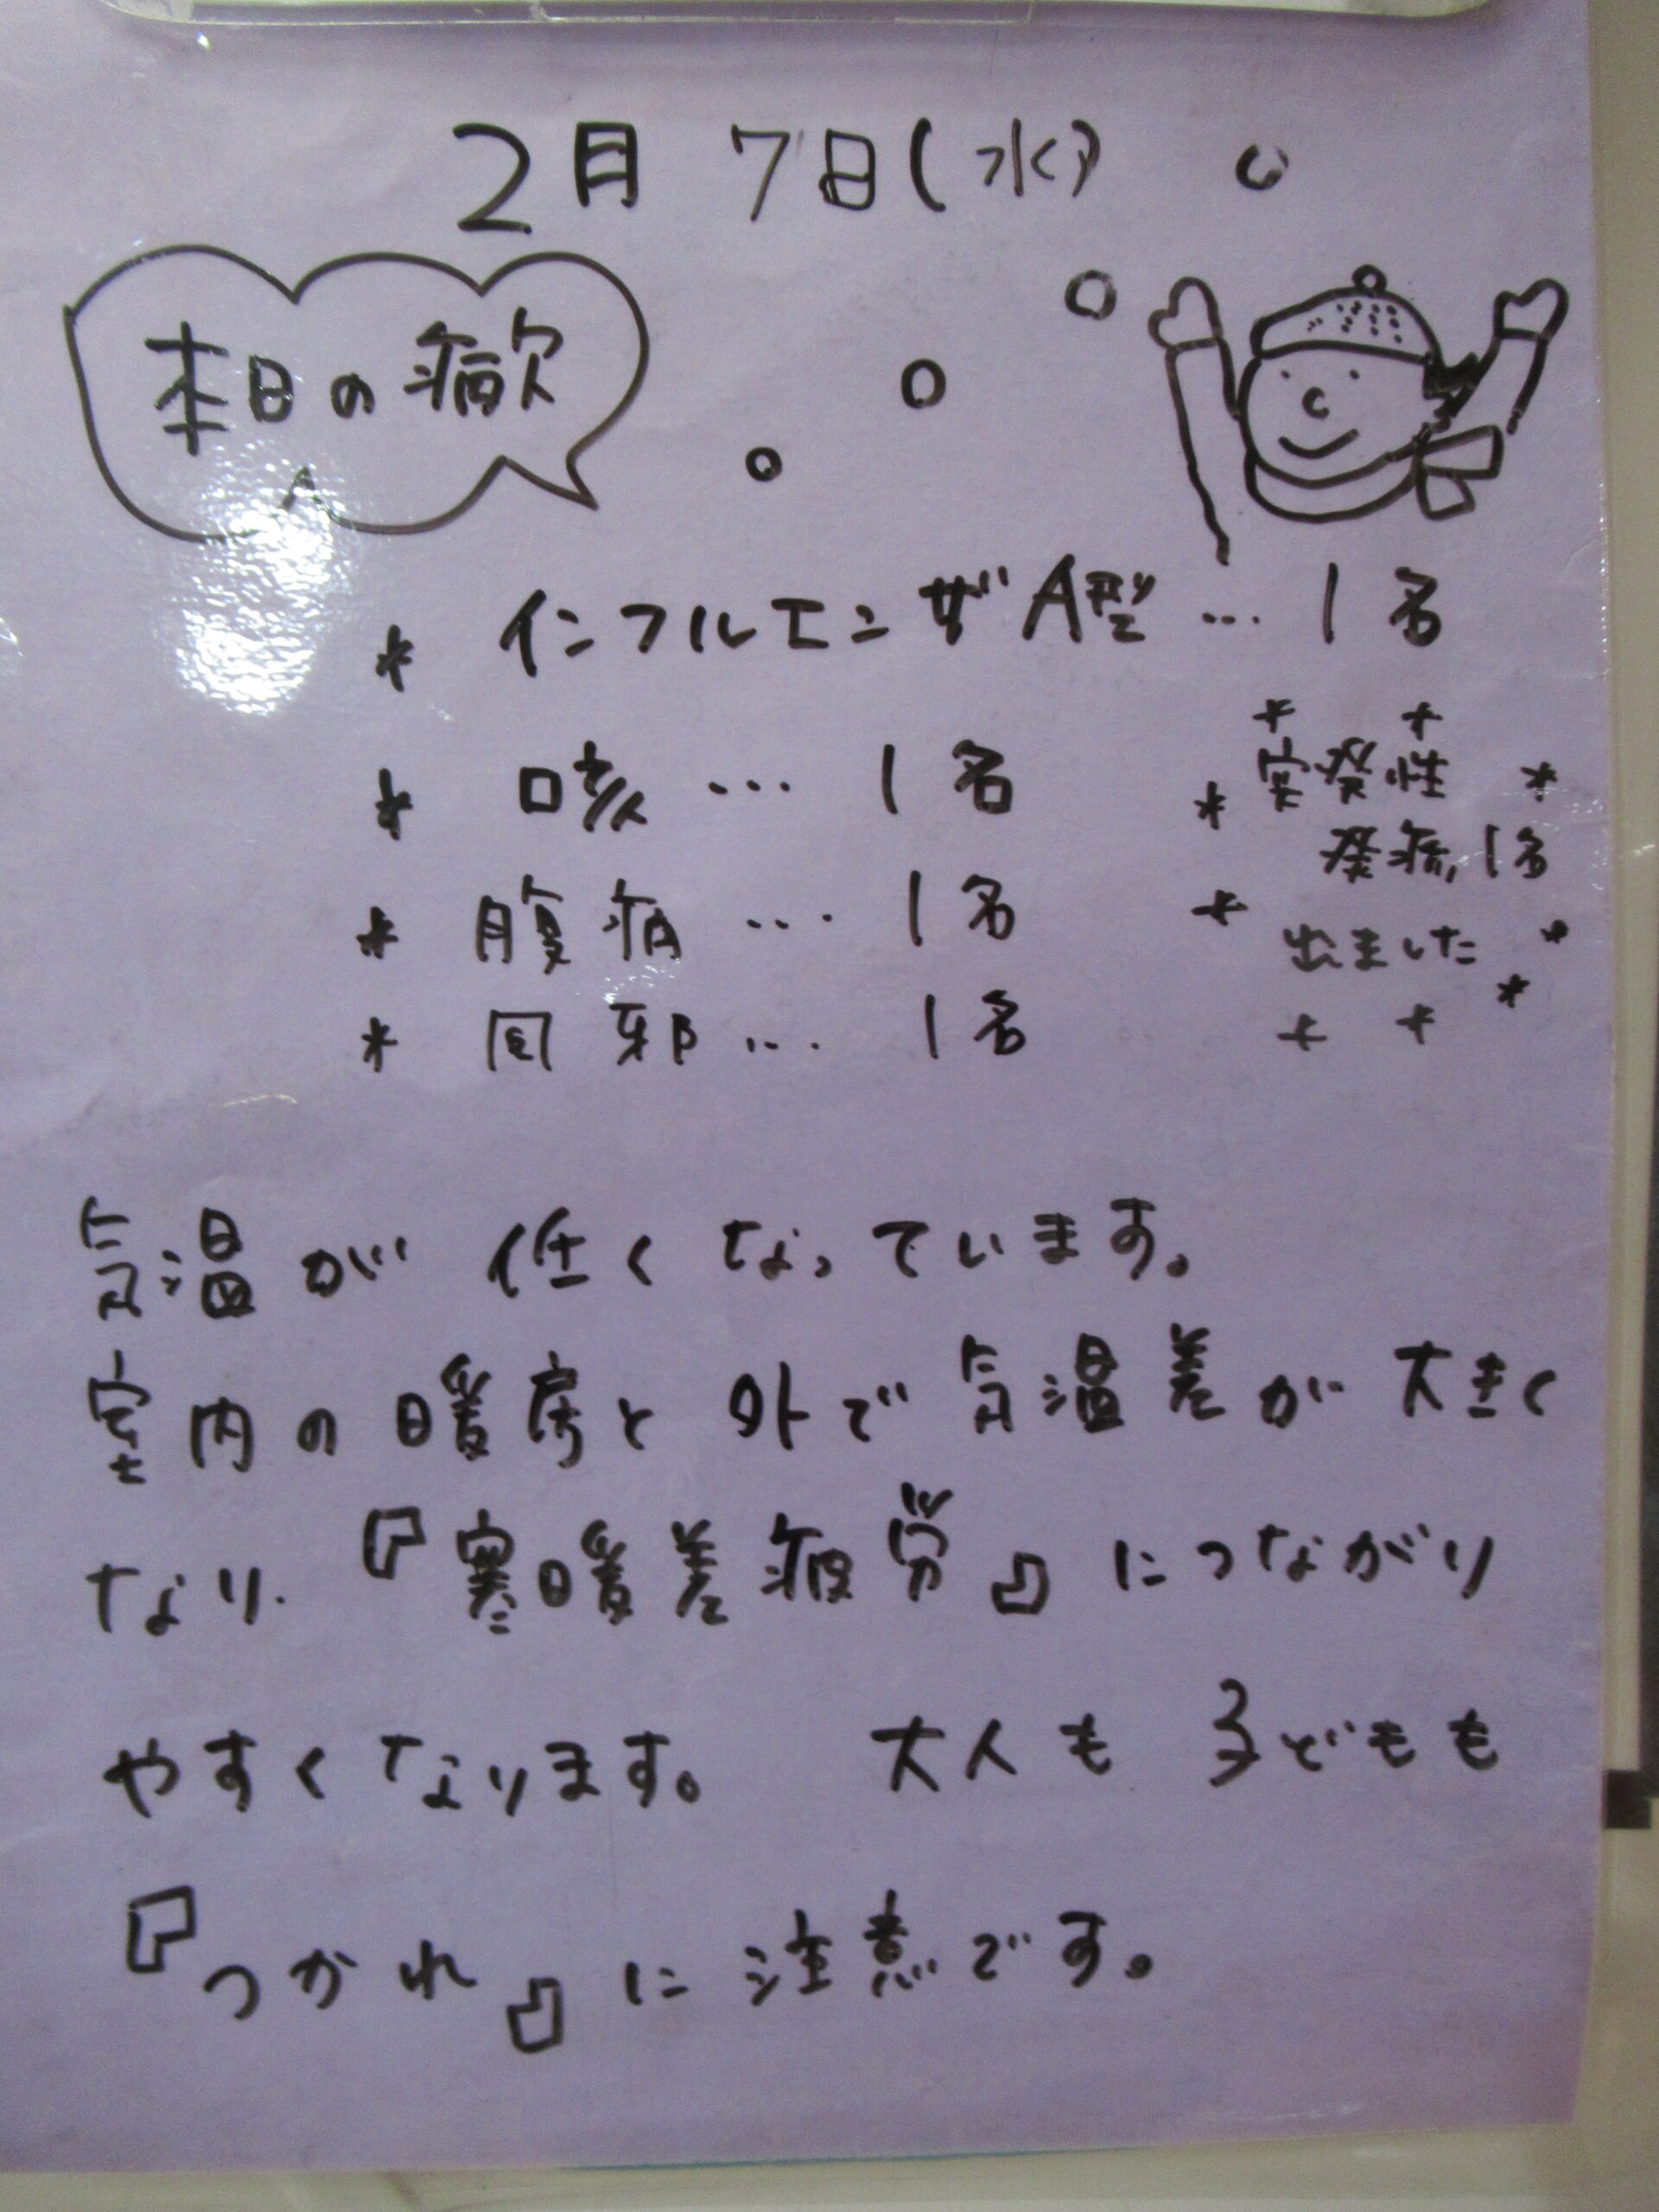 2月 7日(水)
本日の病欠
* インフルエンザA型 … 1名
* 咳 … 1名
* 腹痛 … 1名
* 風邪 … 1名
突発性
発疹 1名
出ました
気温が 低くなっています。
室内の暖房と外で気温差が大きく
なり、『寒暖差疲労』につながり
やすくなります。 大人も 子どもも
『つかれ』に注意です。